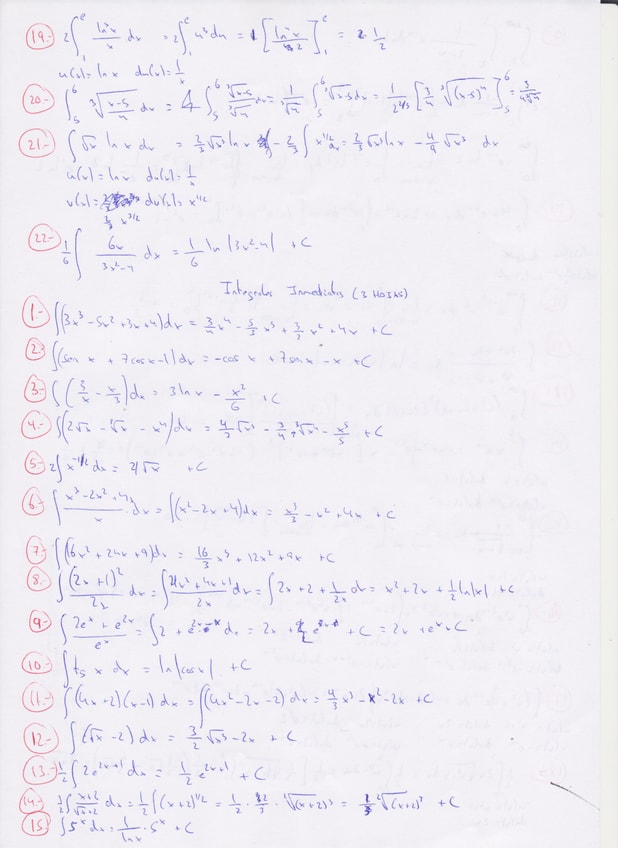 19.- 2∫₁ᵉ ln³x/x dx = 2∫₁ᵉ u³du = [ln⁴x/2]₁ᵉ = 1/2
u(x)= ln x du(x)= 1/x
20.- ∫₅⁶ ∛((x-5)/4) dx = ∫₅⁶ ∛(x-5)/∛4 dx = 1/∛4 ∫₅⁶ ∛(x-5) dx = 1/2^(2/3) [3/4 ∛(x-5)⁴]₅⁶ = 3/(4∛4)
21.- ∫√x ln x dx = 2/3 √x³ ln x - 2/3 ∫ x^(1/2) dx = 2/3 √x³ ln x - 4/9 √x³ dx
u(x)= ln x du(x)= 1/x
v(x)= 2/3 x^(3/2) dv(x)= x^(1/2)
22.- 1/6 ∫ 6x/(3x²-4) dx = 1/6 ln |3x²-4| +C
Integrales Inmediatas (3 HOJAS)
1.- ∫(3x³-5x²+3x+4)dx = 3/4 x⁴ - 5/3 x³ + 3/2 x² + 4x +C
2.- ∫(sen x + 7cos x-1)dx = -cos x + 7sen x - x +C
3.- ∫(3/x - x/3)dx = 3 ln x - x²/6 +C
4.- ∫(2√x - ∛x - x⁴)dx = - x⁵/5 +C
5.- 2∫x^(-1/2) dx = 2√x +C
6.- ∫ (x³-2x²+4x)/x dx = ∫(x²-2x+4)dx = x³/3 - x² + 4x +C
7.- ∫(16x²+24x+9)dx = 16/3 x³ + 12x² + 9x +C
8.- ∫ (2x+1)²/2x dx = ∫ (4x²+4x+1)/2x dx = ∫ 2x+2+1/2x dx = x²+2x+1/2 ln|x| +C
9.- ∫ (2eˣ+e²ˣ)/eˣ dx = ∫ 2+e dx = 2x + +C = 2x + eˣ+C
10.- ∫ tg x dx = ln|cos x| +C
11.- ∫(4x+2)(x-1) dx = ∫(4x²-2x-2) dx = 4/3 x³ - x² - 2x +C
12.- ∫(√x-2)dx = 3/2 √x³ - 2x +C
13.- 1/2 ∫2e^(2x+1) dx = 1/2 e^(2x+1) +C
14.- 1/2 ∫ (x+2)/√(x+2) dx = 1/2 ∫(x+2)^(1/2) = 1/2 · 2/3 · ²√(x+2)³ = 1/3 ²√(x+2)³ +C
15.- ∫5ˣ dx = 1/ln x · 5ˣ +C